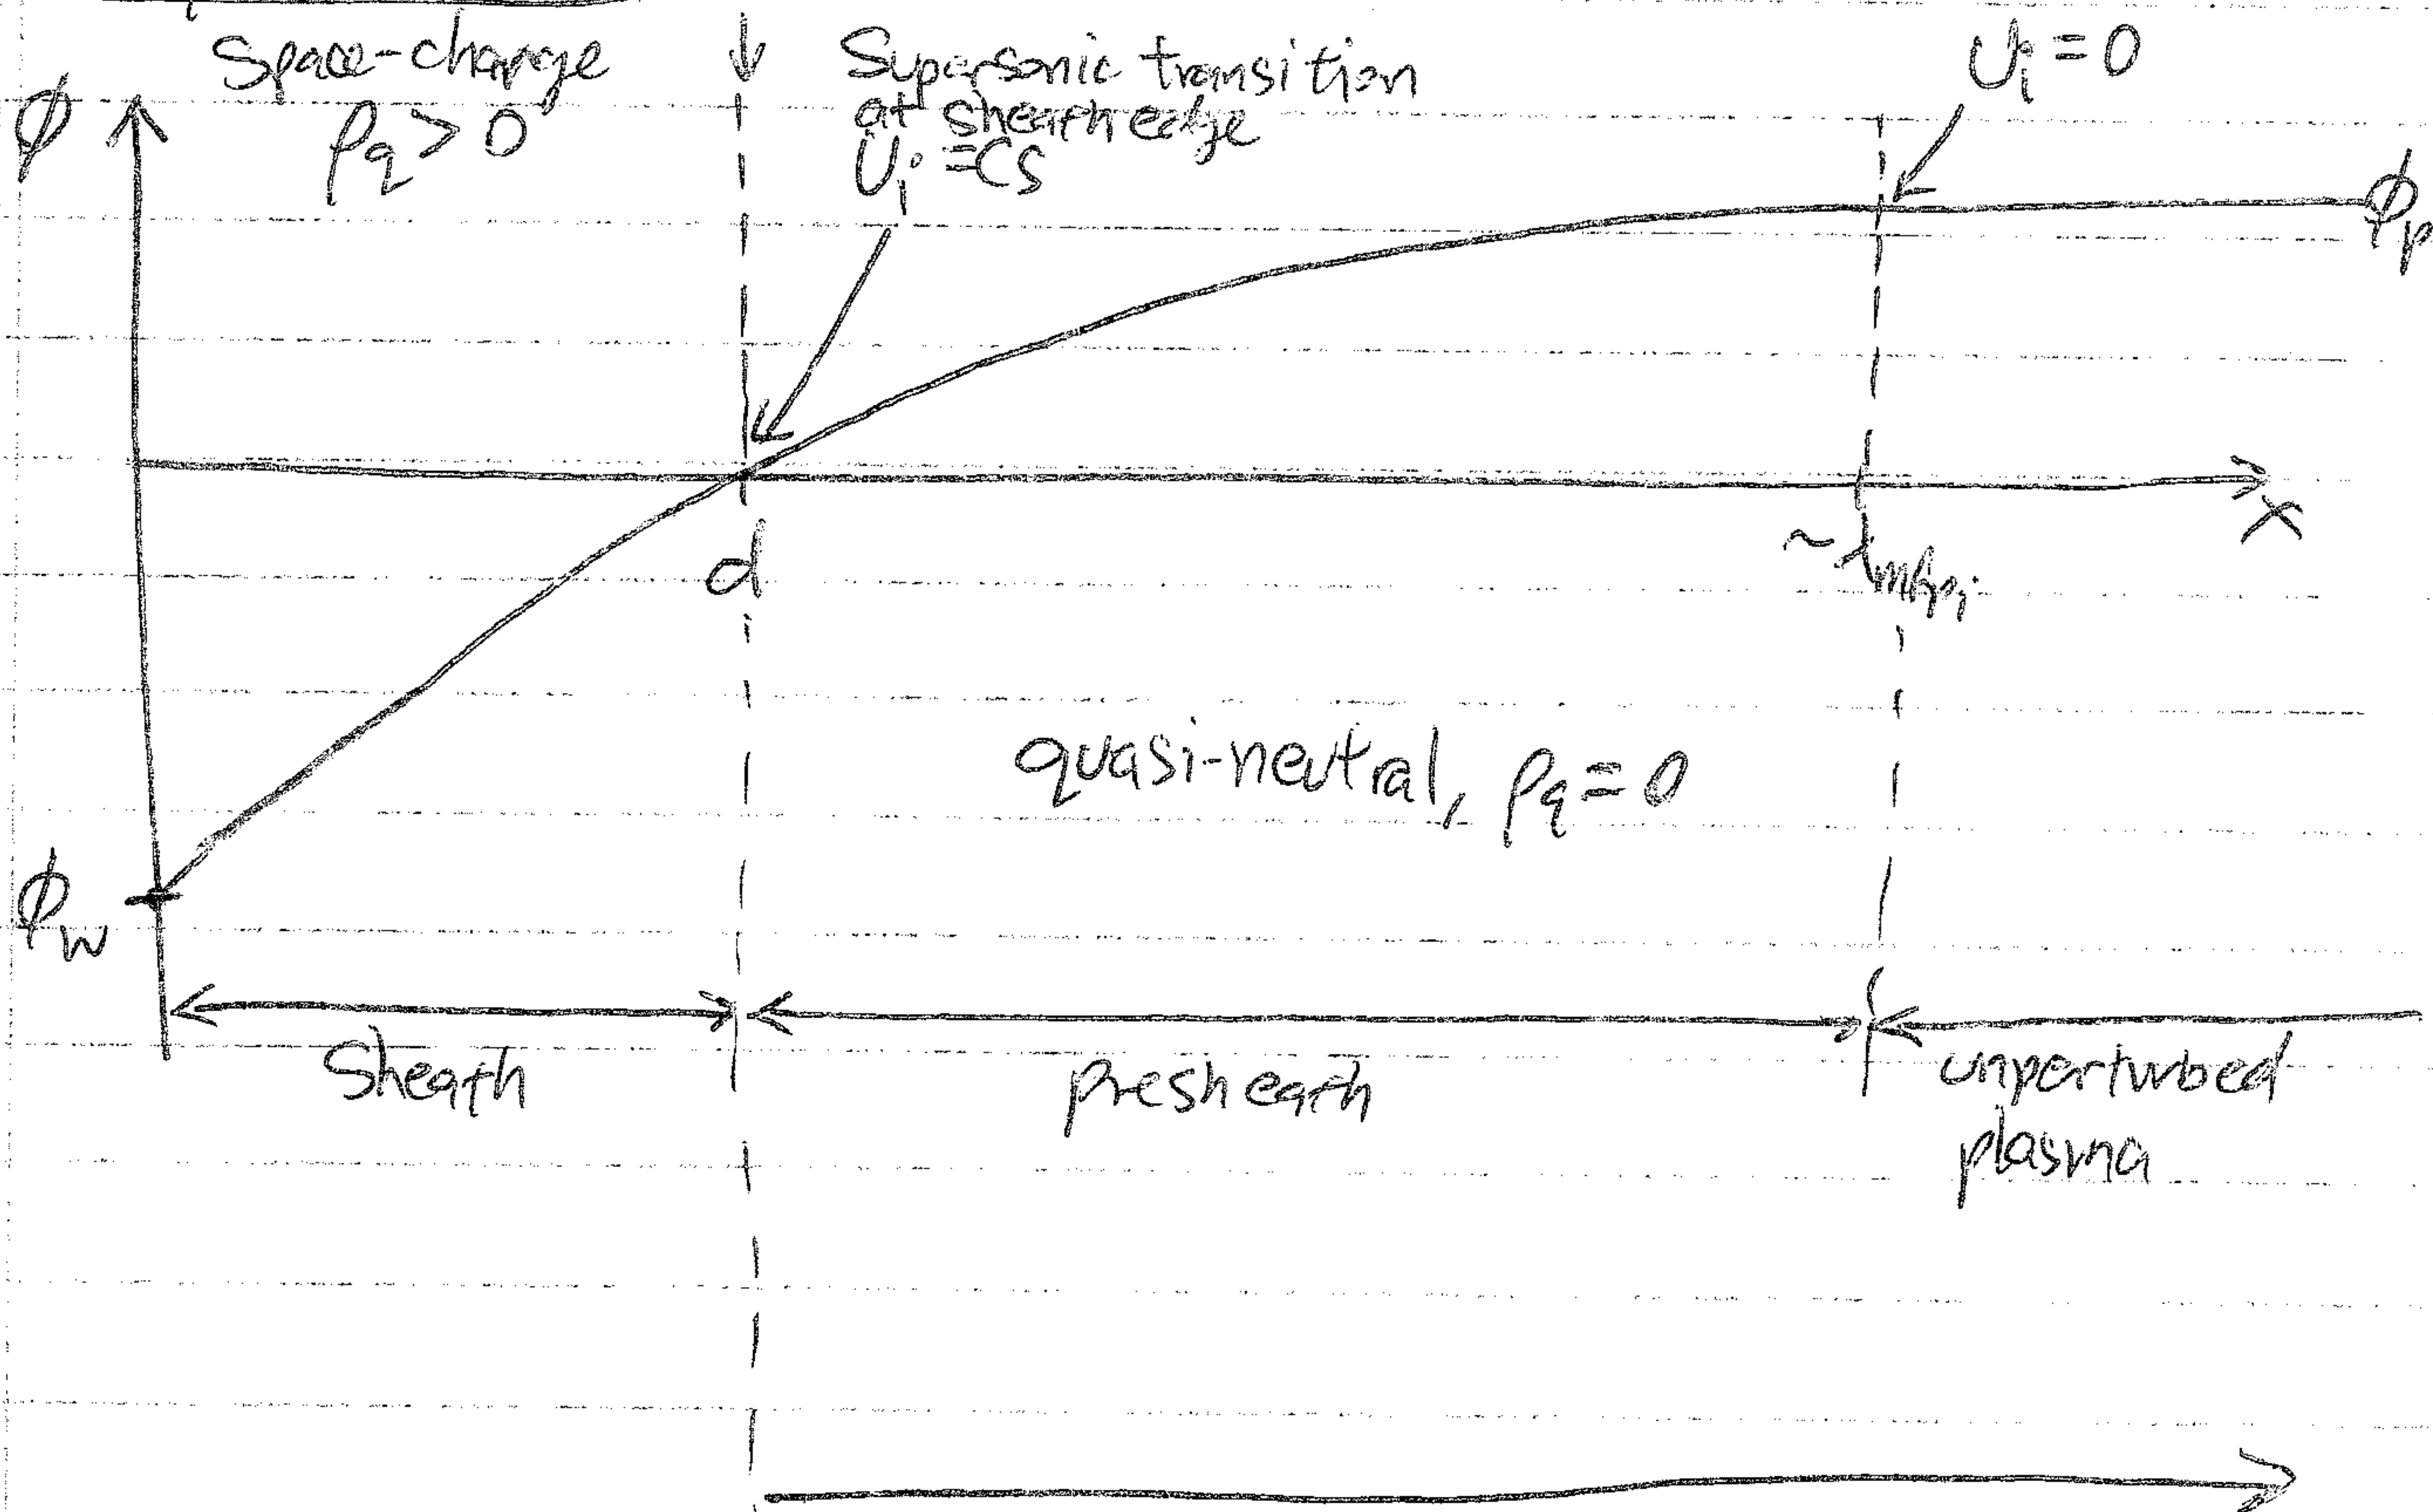 Space-charge
ρq > 0
Supersonic transition
at sheath edge
Ui = Cs
Ui = 0
ϕ
ϕp
x
d
~ λmfp,i
quasi-neutral, ρq = 0
ϕw
Sheath
presheath
unperturbed
plasma